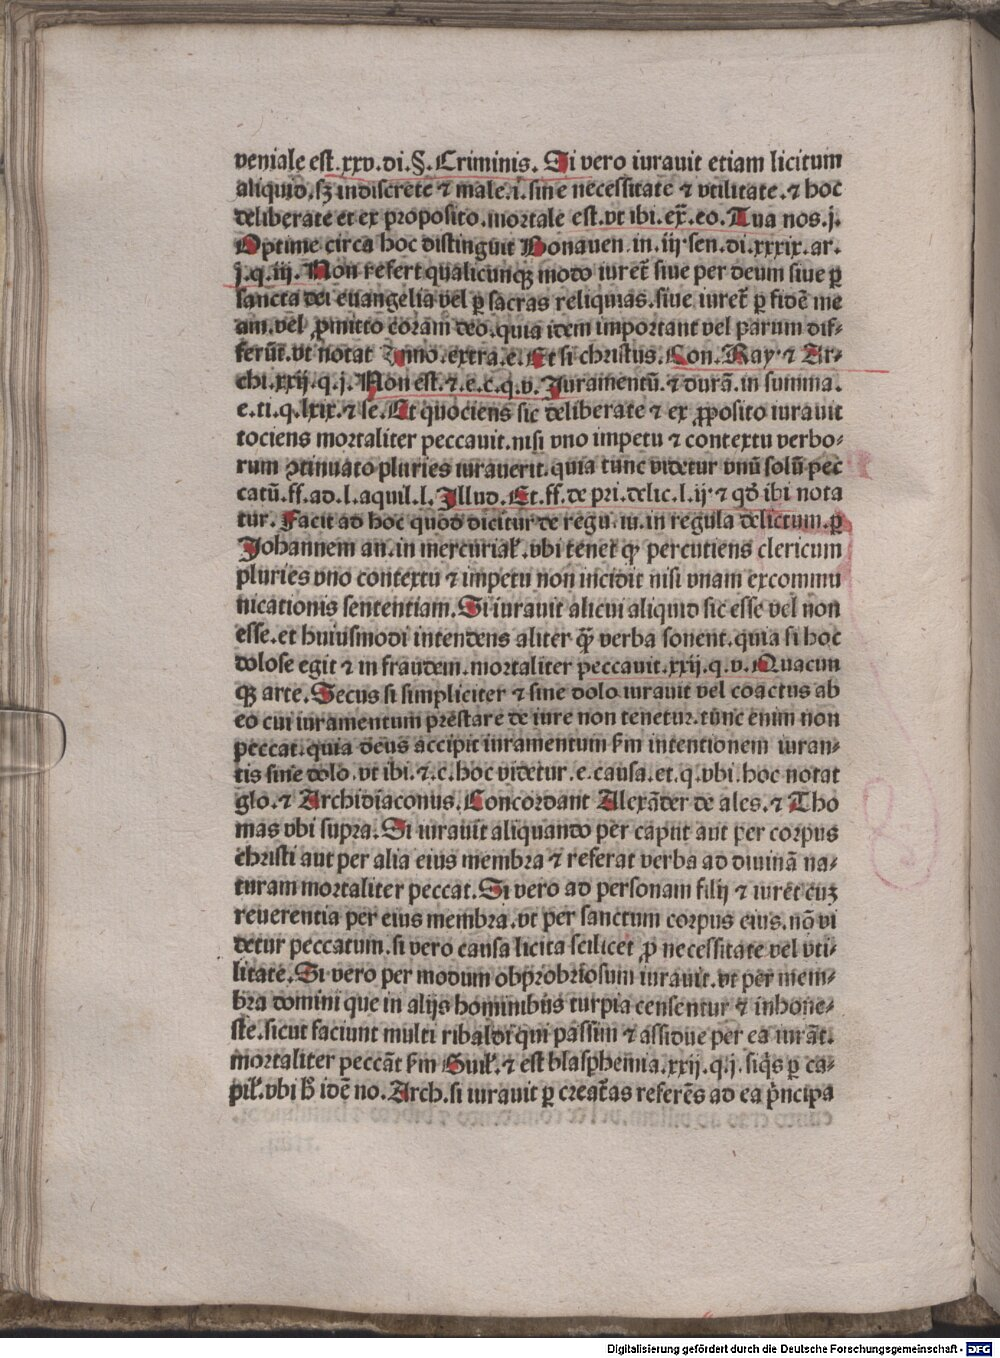 veniale est.xxv.di.§.Criminis. Si vero iurauit etiam licitum
aliquid.sꝫ indiscrete ⁊ male.i.sine necessitate ⁊ vtilitate.⁊ hoc
deliberate et ex proposito.mortale est.vt ibi.ex̄.eo.Tua nos.j.
Optime circa hoc distinguit Bonauen.in.iij.sen.di.xxxix.ar.
j.q.iij. Non refert qualicunqꝫ modo iuret̄ siue per deum siue ꝑ
sancta dei euangelia vel ꝑ sacras reliquias.siue iuret̄ ꝑ fidē me
am.vel ꝓmitto coram deo.quia idem important vel parum dif⸗
ferūt.vt notat Inno.extra.e.Et si christus.Con.Ray.⁊ Ar⸗
chi.xxij.q.j.Non est.⁊.e.c.q.v.Iuramentū.⁊ durā.in summa.
e.ti.q.lxix.⁊ se.Et quociens sic deliberate ⁊ ex ꝓposito iurauit
tociens mortaliter peccauit.nisi vno impetu ⁊ contextu verbo⸗
rum ꝯtinuato pluries iurauerit.quia tunc videtur vnū solū pec
catū.ff.ad.l.aquil.l.Illud.Et.ff.de pri.delic.l.ij.⁊ qd̄ ibi nota
tur. Facit ad hoc quod dicitur de regu.iu.in regula delictum.ꝑ
Johannem an.in mercurial̄.vbi tenet ꝙ percutiens clericum
pluries vno contextu ⁊ impetu non incidit nisi vnam excommu
nicationis sententiam.Si iurauit alicui aliquid sic esse vel non
esse.et huiusmodi intendens aliter q̄ȝ verba sonent.quia si hoc
dolose egit ⁊ in fraudem.mortaliter peccauit.xxij.q.v.Quacun
qꝫ arte.Secus si simpliciter ⁊ sine dolo iurauit vel coactus ab
eo cui iuramentum prestare de iure non tenetur.tunc enim non
peccat.quia deus accipit iuramentum s̄m intentionem iuran⸗
tis sine dolo.vt ibi.⁊.c.hoc videtur.e.causa.et.q.vbi.hoc notat
glo.⁊ Archidiaconus.Concordant Alexāder de ales.⁊ Tho
mas vbi supra.Si iurauit aliquando per caput aut per corpus
christi aut per alia eius membra ⁊ referat verba ad diuinā na⸗
turam mortaliter peccat.Si vero ad personam filij ⁊ iurēt cuꝫ
reuerentia per eius membra.vt per sanctum corpus eius.nō vi
detur peccatum.si vero causa licita scilicet ꝓ necessitate vel vti⸗
litate.Si vero per modum obprobriosum iurauit.vt per mem⸗
bra domini que in alijs hominibus turpia censentur ⁊ inhone⸗
ste.sicut faciunt multi ribaldi qui passim ⁊ assidue per ea iurāt.
mortaliter peccāt s̄m Guil̄.⁊ est blasphemia.xxij.q.j.siq̄s ꝑ ca⸗
pil̄.vbi h̄ idē no.Arch.si iurauit ꝑ creat̄as referēs ad ea p̄ncipa
Digitalisierung gefördert durch die Deutsche Forschungsgemeinschaft - DFG